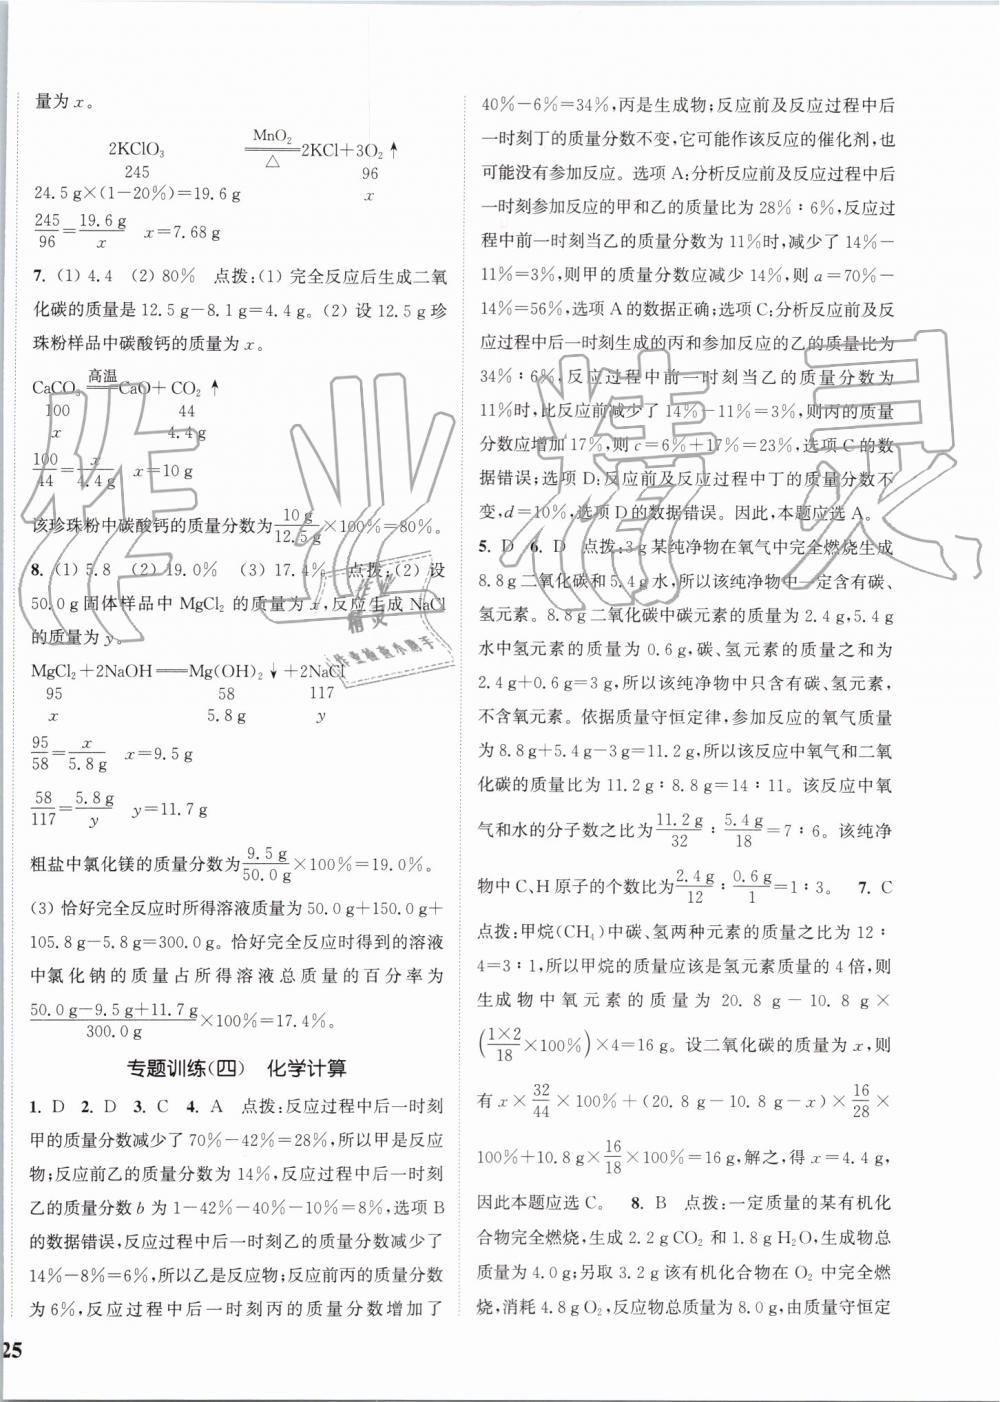 量为 x。
2KClO₃ \xlongequal[△]{MnO₂} 2KCl+3O₂↑
245 96
24.5 g×(1−20%)=19.6 g x
245/96=19.6 g/x x=7.68 g
7. (1) 4.4 (2) 80% 点拨:(1) 完全反应后生成二氧
化碳的质量是 12.5 g−8.1 g=4.4 g。(2) 设 12.5 g 珍
珠粉样品中碳酸钙的质量为 x。
CaCO₃ \xlongequal{高温} CaO+CO₂↑
100 44
x 4.4 g
100/44=x/4.4 g x=10 g
该珍珠粉中碳酸钙的质量分数为 10 g/12.5 g×100%=80%。
8. (1) 5.8 (2) 19.0% (3) 17.4% 点拨:(2) 设
50.0 g 固体样品中 MgCl₂ 的质量为 x,反应生成 NaCl
的质量为 y。
MgCl₂+2NaOH══Mg(OH)₂↓+2NaCl
95 58 117
x 5.8 g y
95/58=x/5.8 g x=9.5 g
58/117=5.8 g/y y=11.7 g
粗盐中氯化镁的质量分数为 9.5 g/50.0 g×100%=19.0%。
(3) 恰好完全反应时所得溶液质量为 50.0 g+150.0 g+
105.8 g−5.8 g=300.0 g。恰好完全反应时得到的溶液
中氯化钠的质量占所得溶液总质量的百分率为
(50.0 g−9.5 g+11.7 g)/300.0 g×100%=17.4%。
专题训练(四) 化学计算
1. D 2. D 3. C 4. A 点拨:反应过程中后一时刻
甲的质量分数减少了 70%−42%=28%,所以甲是反应
物;反应前乙的质量分数为 14%,反应过程中后一时刻
乙的质量分数 b 为 1−42%−40%−10%=8%,选项 B
的数据错误,反应过程中后一时刻乙的质量分数减少了
14%−8%=6%,所以乙是反应物;反应前丙的质量分数
为 6%,反应过程中后一时刻丙的质量分数增加了
40%−6%=34%,丙是生成物;反应前及反应过程中后
一时刻丁的质量分数不变,它可能作该反应的催化剂,也
可能没有参加反应。选项 A:分析反应前及反应过程中后
一时刻参加反应的甲和乙的质量比为 28%∶6%,反应过
程中前一时刻当乙的质量分数为 11%时,减少了 14%−
11%=3%,则甲的质量分数应减少 14%,则 a=70%−
14%=56%,选项 A 的数据正确;选项 C:分析反应前及反
应过程中后一时刻生成的丙和参加反应的乙的质量比为
34%∶6%,反应过程中前一时刻当乙的质量分数为
11%时,比反应前减少了 14%−11%=3%,则丙的质量
分数应增加 17%,则 c=6%+17%=23%,选项 C 的数
据错误;选项 D:反应前及反应过程中丁的质量分数不
变,d=10%,选项 D 的数据错误。因此,本题应选 A。
5. D 6. D 点拨:3 g 某纯净物在氧气中完全燃烧生成
8.8 g 二氧化碳和 5.4 g 水,所以该纯净物中一定含有碳、
氢元素。8.8 g 二氧化碳中碳元素的质量为 2.4 g,5.4 g
水中氢元素的质量为 0.6 g,碳、氢元素的质量之和为
2.4 g+0.6 g=3 g,所以该纯净物中只含有碳、氢元素,
不含氧元素。依据质量守恒定律,参加反应的氧气质量
为 8.8 g+5.4 g−3 g=11.2 g,所以该反应中氧气和二氧
化碳的质量比为 11.2 g∶8.8 g=14∶11。该反应中氧
气和水的分子数之比为 11.2 g/32∶5.4 g/18=7∶6。该纯净
物中 C、H 原子的个数比为 2.4 g/12∶0.6 g/1=1∶3。 7. C
点拨:甲烷(CH₄)中碳、氢两种元素的质量之比为 12∶
4=3∶1,所以甲烷的质量应该是氢元素质量的 4 倍,则
生成物中氧元素的质量为 20.8 g−10.8 g×
(1×2/18×100%)×4=16 g。设二氧化碳的质量为 x,则
有 x×32/44×100%+(20.8 g−10.8 g−x)×16/28×
100%+10.8 g×16/18×100%=16 g,解之,得 x=4.4 g,
因此本题应选 C。 8. B 点拨:一定质量的某有机化
合物完全燃烧,生成 2.2 g CO₂ 和 1.8 g H₂O,生成物总
质量为 4.0 g;另取 3.2 g 该有机化合物在 O₂ 中完全燃
烧,消耗 4.8 g O₂,反应物总质量为 8.0 g,由质量守恒定
25
作业精灵
作业
精灵
作业检查小助手